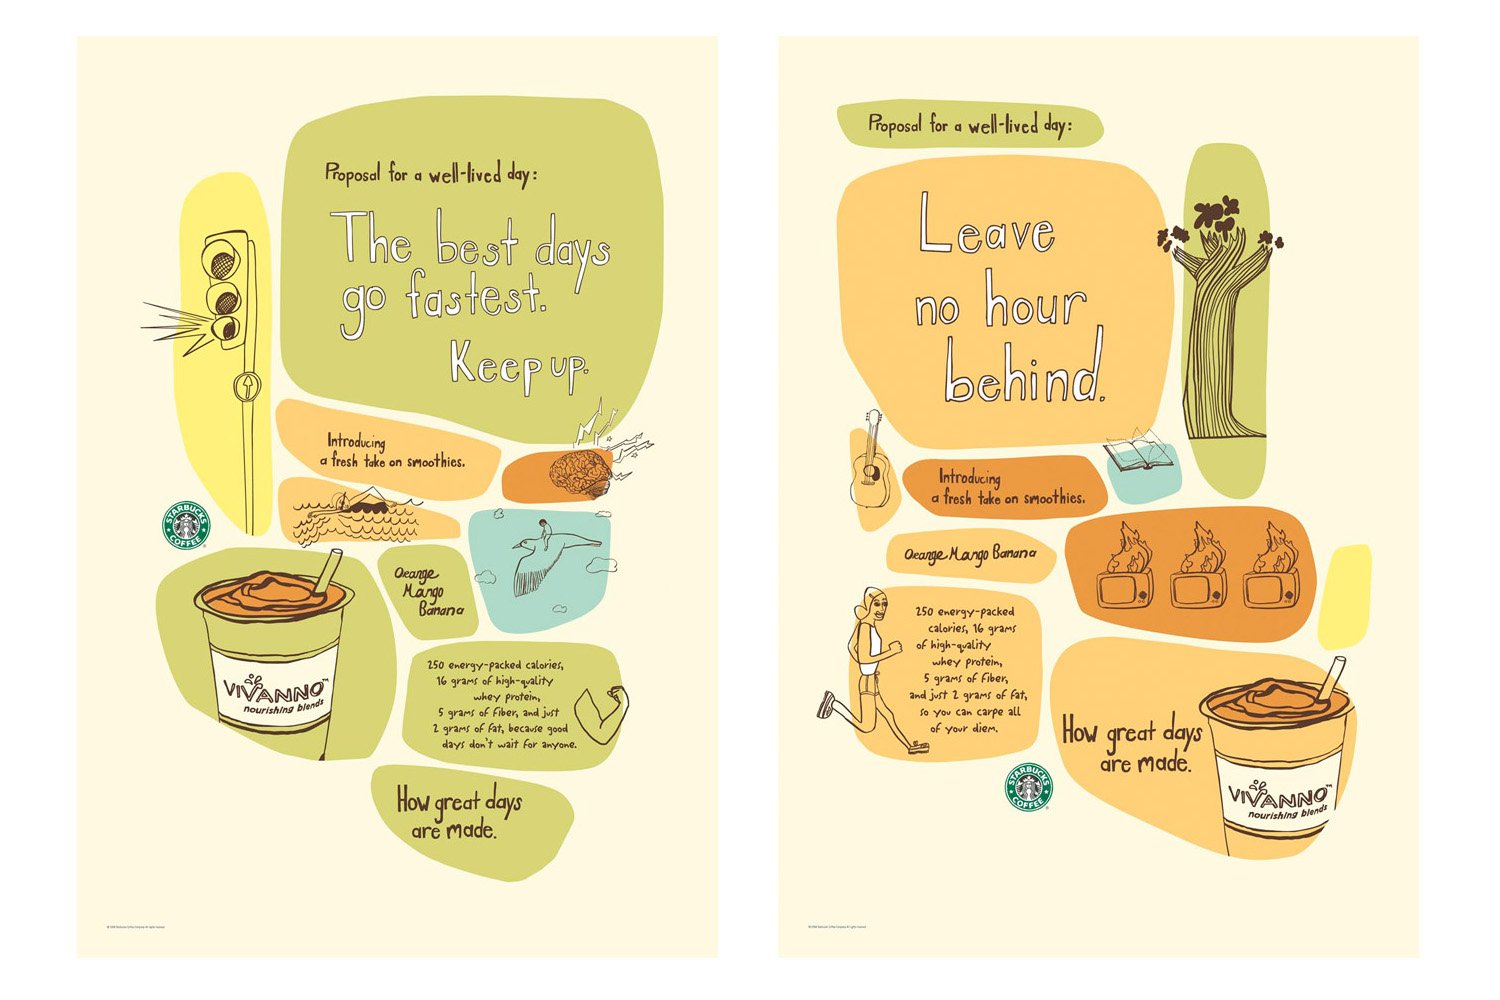 Proposal for a well-lived day:
The best days
go fastest.
Keep up.
Introducing
a fresh take on smoothies.
STARBUCKS
COFFEE
Orange
Mango
Banana
VIVANNO™
nourishing blends
250 energy-packed calories,
16 grams of high-quality
whey protein,
5 grams of fiber, and just
2 grams of fat, because good
days don't wait for anyone.
How great days
are made.
© 2008 Starbucks Coffee Company. All rights reserved.
Proposal for a well-lived day:
Leave
no hour
behind.
Introducing
a fresh take on smoothies.
Orange Mango Banana
250 energy-packed
calories, 16 grams
of high-quality
whey protein,
5 grams of fiber,
and just 2 grams of fat,
so you can carpe all
of your diem.
STARBUCKS
COFFEE
How great days
are made.
VIVANNO™
nourishing blends
© 2008 Starbucks Coffee Company. All rights reserved.